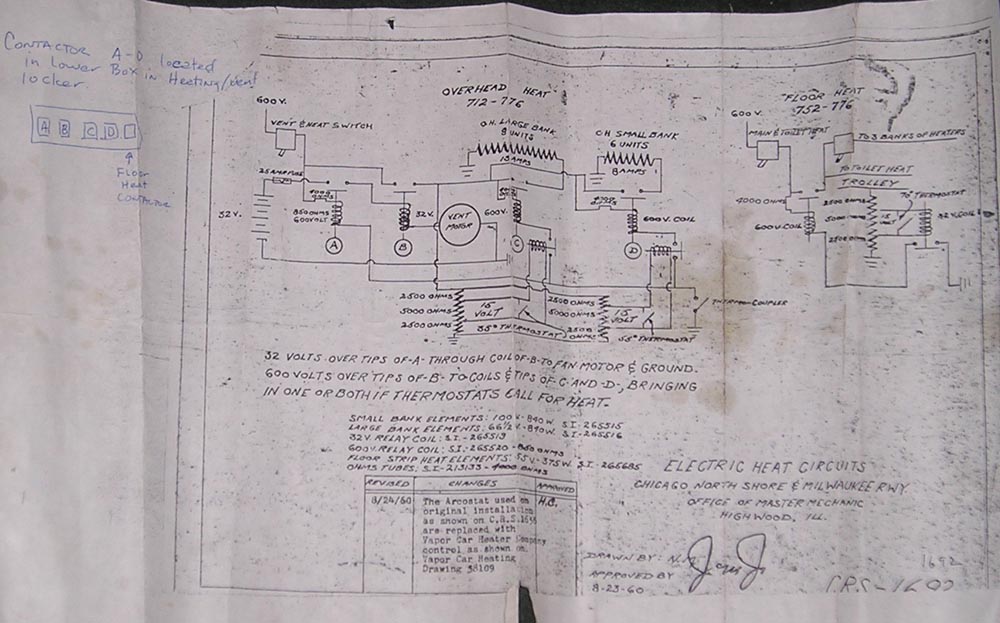 CONTACTOR A-D located
in Lower Box in Heating/vent
locker
A B C D
Floor
Heat
Contactor
OVERHEAD HEAT
712-776
600 V.
VENT & HEAT SWITCH
O.H. LARGE BANK
9 UNITS
13 AMPS
O.H. SMALL BANK
6 UNITS
8 AMPS
25 AMP FUSE
32 V.
850 OHMS
600 VOLT
A
B
32 V.
VENT
MOTOR
600 V.
C
600 V. COIL
D
2500 OHMS
5000 OHMS
2500 OHMS
15
VOLT
55° THERMOSTAT
2500
OHMS
15
VOLT
55° THERMOSTAT
THERMO-COUPLER
FLOOR HEAT
752-776
600 V.
MAIN & TOILET HEAT
TO 3 BANKS OF HEATERS
TO TOILET HEAT
TROLLEY
4000 OHMS
2500 OHMS
5000
2500
15
VOLT
70° THERMOSTAT
32 V. COIL
600 V. COIL
32 VOLTS OVER TIPS OF -A- THROUGH COIL OF -B- TO FAN MOTOR & GROUND.
600 VOLTS OVER TIPS OF -B- TO COILS & TIPS OF -C- AND -D-, BRINGING
IN ONE OR BOTH IF THERMOSTATS CALL FOR HEAT.
SMALL BANK ELEMENTS: 100 V.-840 W. S.I.-265515
LARGE BANK ELEMENTS: 66½ V.-890 W. S.I.-265516
32 V. RELAY COIL: S.I.-265519
600 V. RELAY COIL: S.I.-265520-850 OHMS
FLOOR STRIP HEAT ELEMENTS: 55 V.-375 W. S.I.-265685
OHMS TUBES: S.I.-213133-4000 OHMS
REVISED CHANGES APPROVED
8/24/60 The Arcostat used on H.C.
original installation
as shown on C.R.S.
are replaced with
Vapor Car Heater Company
control as shown on
Vapor Car Heating
Drawing 38109
ELECTRIC HEAT CIRCUITS
CHICAGO NORTH SHORE & MILWAUKEE RWY.
OFFICE OF MASTER MECHANIC
HIGHWOOD, ILL.
DRAWN BY:
APPROVED BY
8-23-60
1692
C.R.S.-1692